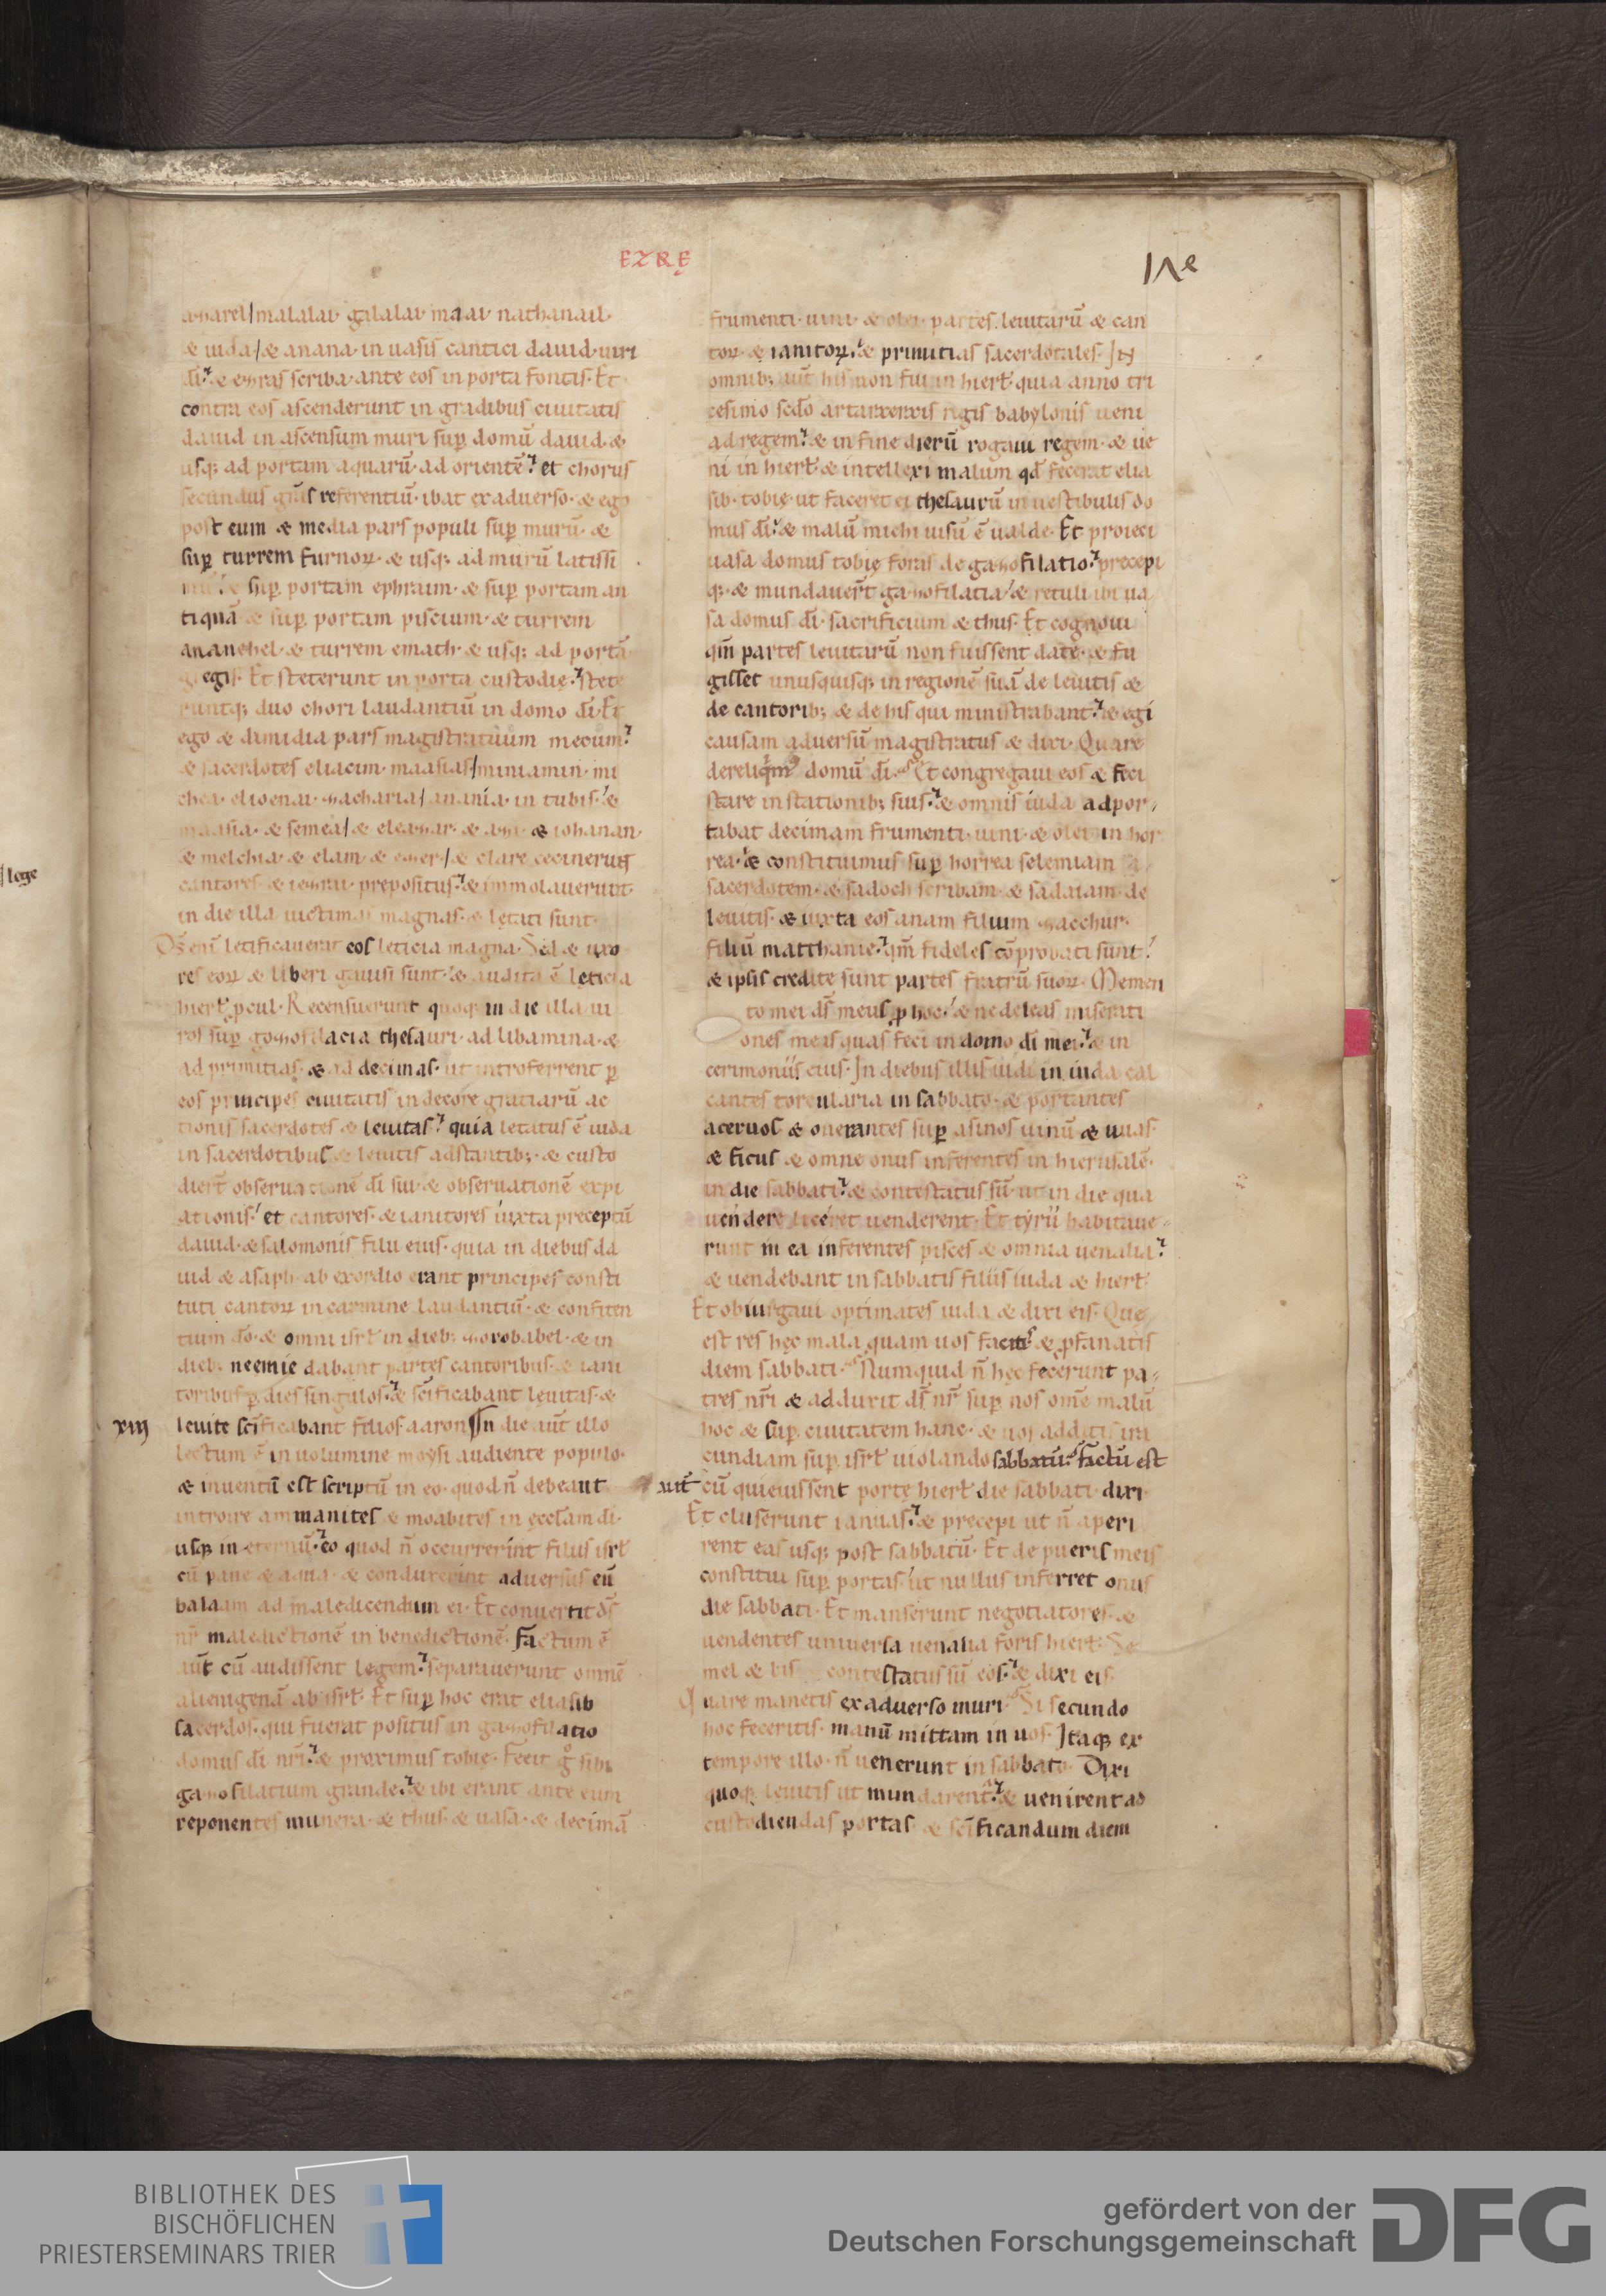 EZRĘ
azarel/malalai· galalai maai· nathanael·
& iuda/& anana· in uasis cantici dauid· uiri
dī·& ezras scriba· ante eos in porta fontis· Et
contra eos ascenderunt in gradibus ciuitatis
dauid in ascensum muri sup domū dauid· &
usq; ad portam aquarū· ad orientē· et chorus
secundus referentiū· ibat exaduerso· & ego
post eum & media pars populi sup murū· &
sup turrem furnoꝝ· & usq; ad murū latissi
sup portam ephraim· & sup portam an
tiquā & sup portam piscium· & turrem
ananehel· & turrem emath· & usq; ad portā
gregis· Et steterunt in porta custodię· stete
runtq; duo chori laudantiū in domo dī· Et
ego & dimidia pars magistratuum mecum·
& sacerdotes eliacim· maasias/miniamin· mi
chea· elioenai· zacharia/anania· in tubis· &
maasia· & semea/& eleazar· & azi· & iohanan·
& melchia· & elam· & ezer·/& clare cecinerunt
cantores· & iezraia· prepositus· & immolauerunt·
in die illa uictimas magnas· & lętati sunt·
Ds̄ enī letificauerat eos leticia magna· Sed & uxo
res eoꝝ & liberi gauisi sunt· & audita ē lęticia
hierl̄ pcul· Recensuerunt quoq; in die illa ui
ros sup gazofilacia thesauri· ad libamina· &
ad primitias· & ad decimas· ut introferrent p
eos principes ciuitatis in decore gratiarū ac
tionis sacerdotes & leuitas· quia letatus ē iuda
in sacerdotibus & leuitis adstantib;· & custo
diert̄ obseruationē dī sui· & obseruationē expi
ationis· et cantores· & ianitores iuxta preceptū
dauid· & salomonis filii eius· quia in diebus da
uid & asaph· ab exordio erant principes consti
tuti cantoꝝ in carmine laudantiū· & confiten
tium dō· & omni isrl̄ in dieb; zorobabel· & in
dieb; neemie dabant partes cantoribus· & iani
toribus p dies singulos· & scīficabant leuitas· &
xiij leuite scīficabant filios aaron In die aūt illo
lectum ē in uolumine moysi audiente populo·
& inuentū est scriptū in eo· quod n̄ debeant
introire ammanites & moabites in ęcclam dī·
usq; in eternū· eo quod n̄ occurrerint filiis isrl̄
cū pane & aqua· & conduxerint aduersus eū
balaam ad maledicendum ei· Et conuertit ds̄
nr̄ maledictionē in benedictionē· Factum ē
aūt cū audissent legem· separauerunt omnē
alienigenā ab isrl̄· Et sup hoc erat eliasib
sacerdos· qui fuerat positus in gazofilatio
domus dī nrī· & proximus tobię· Fecit g° sibi
gazofilatium grande· & ibi erant ante eum
reponentes munera· & thus· & uasa· & decimā
frumenti· uini· & olei· partes leuitarū & can
toꝝ· & ianitoꝝ· & primitias sacerdotales· IN
omnib; aūt his non fui in hierl̄· quia anno tri
cesimo scdō artarxerxis regis babylonis ueni
ad regem· & in fine dierū rogaui regem· & ue
ni in hierl̄· & intellexi malum qd̄ fecerat elia
sib· tobię· ut faceret ei thesaurū in uestibulis do
mus dī· & malū michi uisū ē ualde· Et proieci
uasa domus tobię foras de gazofilatio· precepi
q;· & mundauert̄ gazofilatia· & retuli ibi ua
sa domus dī· sacrificium & thus· Et cognoui
qm̄ partes leuitarū non fuissent date· & fu
gisset unusquisq; in regionē suā de leuitis &
de cantorib; & de his qui ministrabant· & egi
causam aduersū magistratus & dixi· Quare
dereliqm̄ domū dī· Et congregaui eos & feci
stare in stationib; suis· & omnis iuda adpor-
tabat decimam frumenti· uini· & olei in hor
rea· & constituimus sup horrea selemiam
sacerdotem· & sadoch scribam· & sadaiam· de
leuitis· & iuxta eos anam filium zacchur·
filiū matthanie· qm̄ fideles cōprobati sunt·
& ipsis credite sunt partes fratrū suoꝝ· Memen
to mei ds̄ meus p hoc· & ne deleas miserati
ones meas quas feci in domo dī mei· & in
cerimoniis eius· In diebus illis uidi in iuda cal
cantes torcularia in sabbato· & portantes
aceruos & onerantes sup asinos uinū & uuas
& ficus & omne onus inferentes in hierusalē·
in die sabbati· & contestatus sū· ut in die qua
uendere liceret uenderent· Et tyrii habitaue-
runt in ea inferentes pisces & omnia uenalia·
& uendebant in sabbatis filiis iuda & hierl̄
Et obiurgaui optimates iuda & dixi eis· Quę
est res hęc mala quam uos facitis & pfanatis
diem sabbati· Numquid n̄ hęc fecerunt pa-
tres nrī & adduxit ds̄ nr̄ sup nos omē malū
hoc & sup ciuitatem hanc· & uos additis ira
cundiam sup isrl̄ uiolando sabbatū· Factū est
aūt cū quieuissent portę hierl̄ die sabbati· dixi
Et cluserunt ianuas· & precepi ut n̄ aperi
rent eas usq; post sabbatū· Et de pueris meis
constitui sup portas· ut nullus inferret onus
die sabbati· Et manserunt negotiatores· &
uendentes uniuersa uenalia foris hierl̄· Se
mel & bis contestatus sū eos· & dixi eis·
Quare manetis exaduerso muri· Si secundo
hoc feceritis· manū mittam in uos· Itaq; ex
tempore illo· n̄ uenerunt in sabbato· Dixi
quoq; leuitis ut mundarent̄· & uenirent ad
custodiendas portas & scīficandum diem
lege
BIBLIOTHEK DES
BISCHÖFLICHEN
PRIESTERSEMINARS TRIER
gefördert von der
Deutschen Forschungsgemeinschaft
DFG